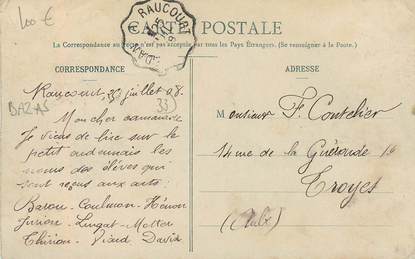 100€
RAUCOURT
CARTE POSTALE
La Correspondance au recto n'est pas acceptée par tous les Pays Étrangers. (Se renseigner à la Poste.)
CORRESPONDANCE
Raucourt, juillet 08.
BAZAS
33)
Mon cher camarade
Je viens de lire sur le
petit ardennais les
noms des élèves qui
sont reçus aux arts
Baron - Coulmon - Hénon
Lingat - Motter
Thirion - Viard David
ADRESSE
Monsieur F. Contelier
14 rue de la 14
Troyes
(Aube)